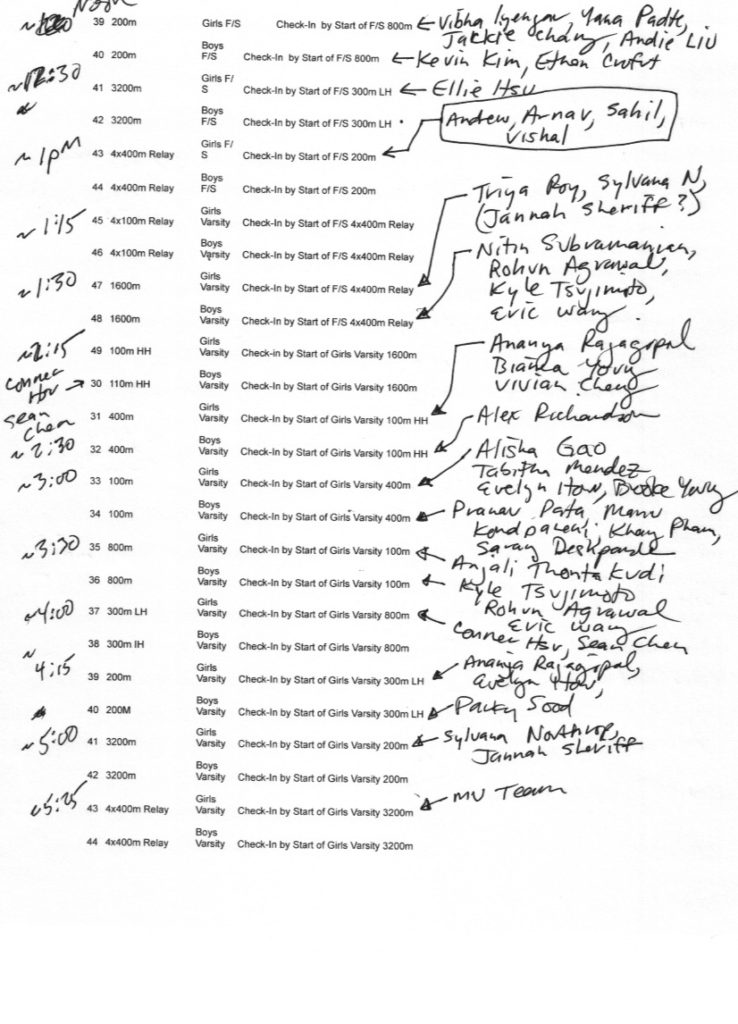 Noon
39 200m Girls F/S Check-In by Start of F/S 800m Vibha Iyengar, Yana Padte,
Jackie Chang, Andie Liu
40 200m Boys F/S Check-In by Start of F/S 800m Kevin Kim, Ethan
~12:30
41 3200m Girls F/S Check-In by Start of F/S 300m LH Ellie Hsu
42 3200m Boys F/S Check-In by Start of F/S 300m LH
Andrew, Arnav, Sahil,
Vishal
~1pm 43 4x400m Relay Girls F/S Check-In by Start of F/S 200m
44 4x400m Relay Boys F/S Check-In by Start of F/S 200m
Triya Roy, Sylvana N,
(Jannah Sheriff?)
~1:15 45 4x100m Relay Girls Varsity Check-In by Start of F/S 4x400m Relay
46 4x100m Relay Boys Varsity Check-In by Start of F/S 4x400m Relay
Nitin Subramanian,
Rohun Agrawal,
~1:30 47 1600m Girls Varsity Check-In by Start of F/S 4x400m Relay
Kyle Tsujimoto,
Eric Wang
48 1600m Boys Varsity Check-In by Start of F/S 4x400m Relay
~2:15 49 100m HH Girls Varsity Check-in by Start of Girls Varsity 1600m
Ananya Rajagopal
Bianca Young
Vivian Cheng
Conner Hsu 30 110m HH Boys Varsity Check-In by Start of Girls Varsity 1600m
Sean Chen
31 400m Girls Varsity Check-In by Start of Girls Varsity 100m HH
Alex Richardson
~2:30 32 400m Boys Varsity Check-In by Start of Girls Varsity 100m HH
Alisha Gao
Tabitha Mendez
Evelyn How, Brooke Young
~3:00 33 100m Girls Varsity Check-In by Start of Girls Varsity 400m
34 100m Boys Varsity Check-In by Start of Girls Varsity 400m Pranav Pata, Manu
Kondpaneni, Khang Pham,
Sarang Deshpande
~3:30 35 800m Girls Varsity Check-In by Start of Girls Varsity 100m
Anjali Thontakudi
36 800m Boys Varsity Check-In by Start of Girls Varsity 100m Kyle Tsujimoto
Rohun Agrawal
Eric Wang
~4:00 37 300m LH Girls Varsity Check-In by Start of Girls Varsity 800m
Conner Hsu, Sean Chen
38 300m IH Boys Varsity Check-In by Start of Girls Varsity 800m
~4:15 39 200m Girls Varsity Check-In by Start of Girls Varsity 300m LH Ananya Rajagopal,
Evelyn How,
40 200M Boys Varsity Check-In by Start of Girls Varsity 300m LH Sood
~5:00 41 3200m Girls Varsity Check-In by Start of Girls Varsity 200m Sylvana Northrop,
Jannah Sheriff
42 3200m Boys Varsity Check-In by Start of Girls Varsity 200m
~5:25 43 4x400m Relay Girls Varsity Check-In by Start of Girls Varsity 3200m MV Team
44 4x400m Relay Boys Varsity Check-In by Start of Girls Varsity 3200m